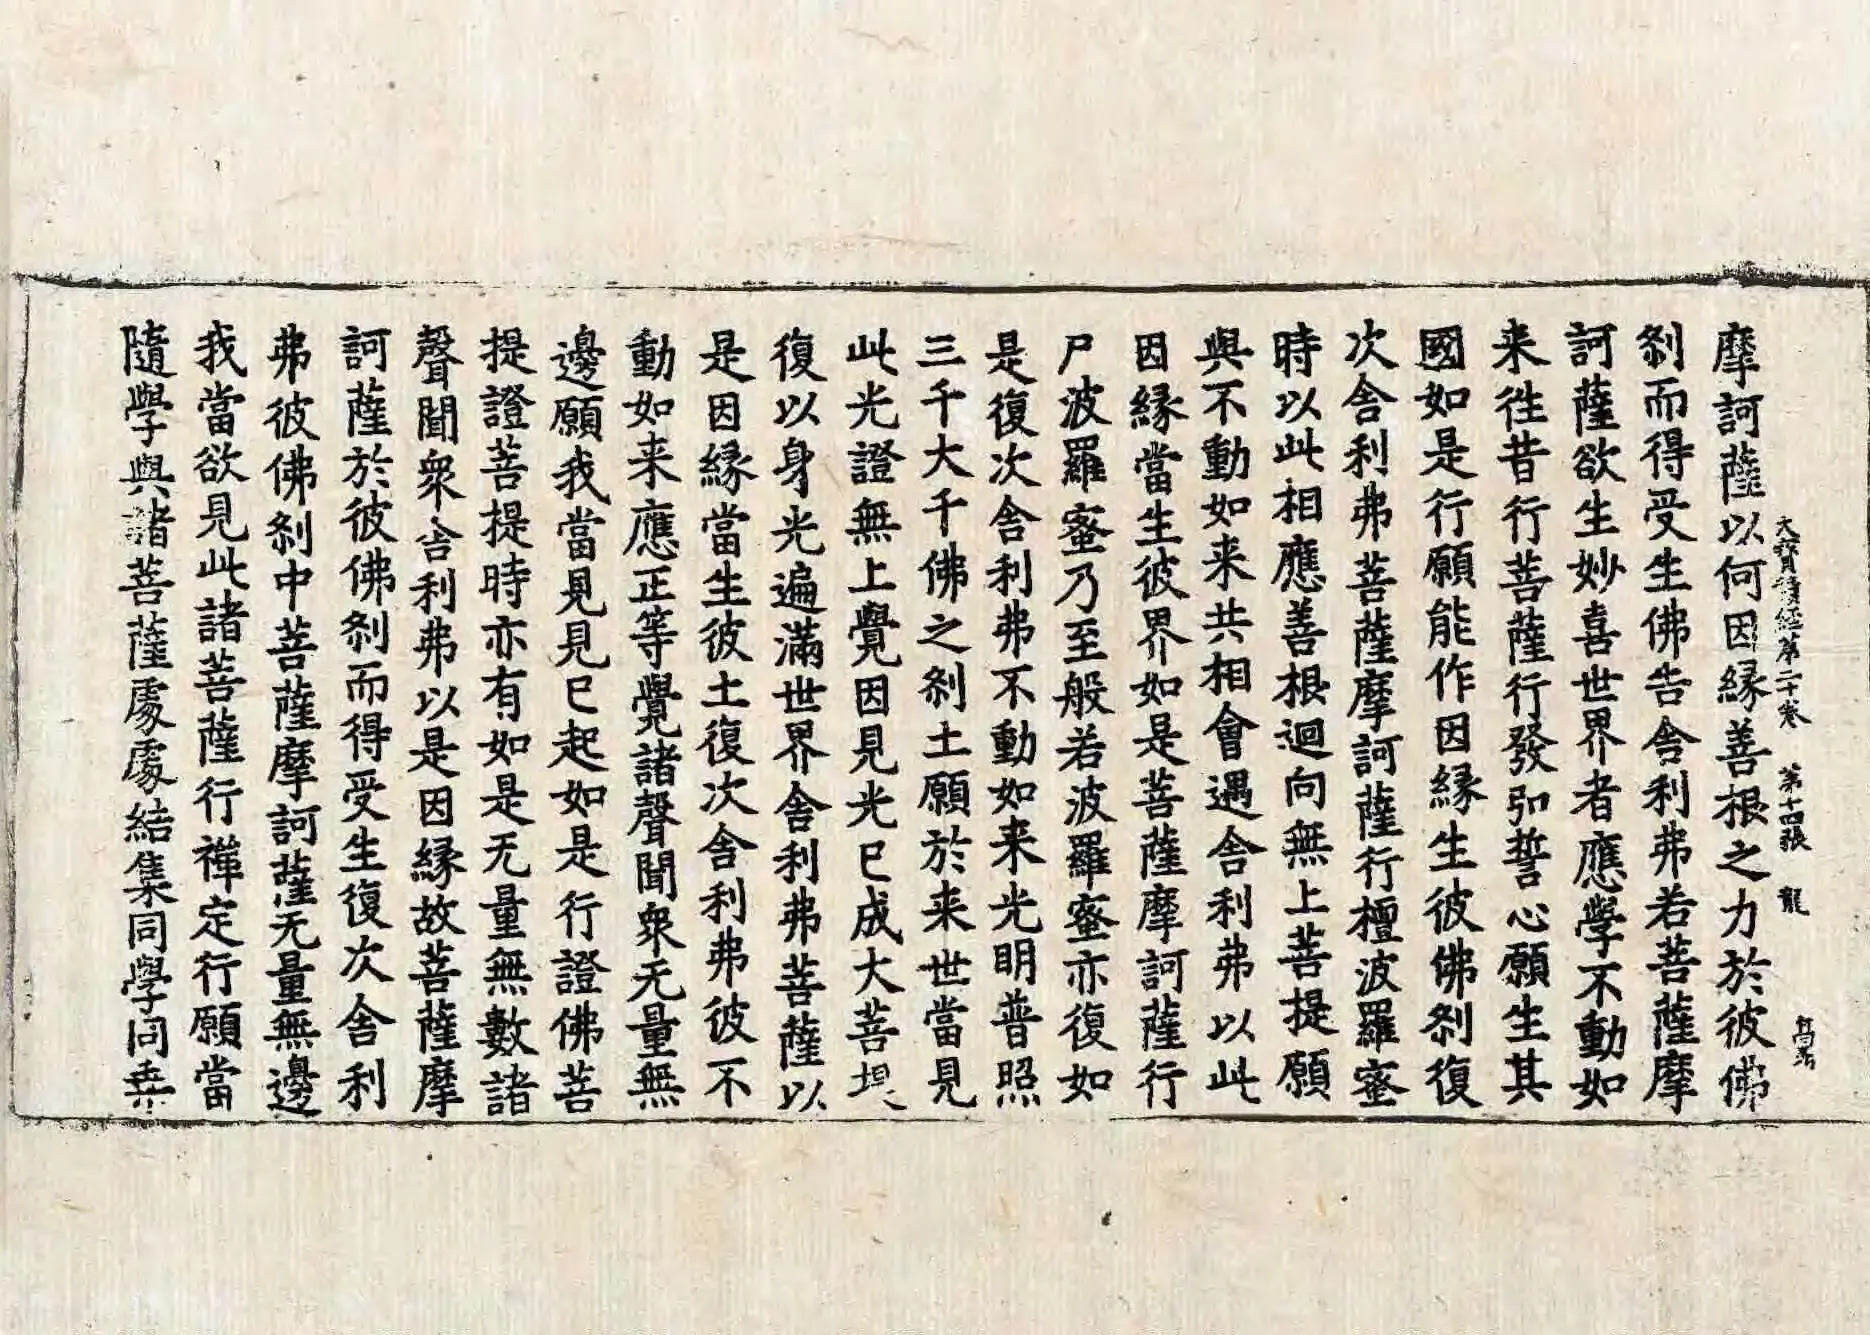 大寶積經第二十卷 第十四張 龍
摩訶薩以何因縁善根之力於彼佛
刹而得受生佛告舎利弗若菩薩摩
訶薩欲生妙喜世界者應學不動如
来徃昔行菩薩行發弘誓心願生其
國如是行願能作因縁生彼佛刹復
次舎利弗菩薩摩訶薩行檀波羅蜜
時以此相應善根迴向無上菩提願
與不動如来共相會遇舎利弗以此
因縁當生彼界如是菩薩摩訶薩行
尸波羅蜜乃至般若波羅蜜亦復如
是復次舎利弗不動如来光明普照
三千大千佛之刹土願於来世當見
此光證無上覺因見光已成大菩提
復以身光遍滿世界舎利弗菩薩以
是因縁當生彼土復次舎利弗彼不
動如来應正等覺諸聲聞衆无量無
邊願我當見見已起如是行證佛菩
提證菩提時亦有如是无量無數諸
聲聞衆舎利弗以是因縁故菩薩摩
訶薩於彼佛刹而得受生復次舎利
弗彼佛刹中菩薩摩訶薩无量無邊
我當欲見此諸菩薩行禪定行願當
隨學與諸菩薩處處結集同學同乗